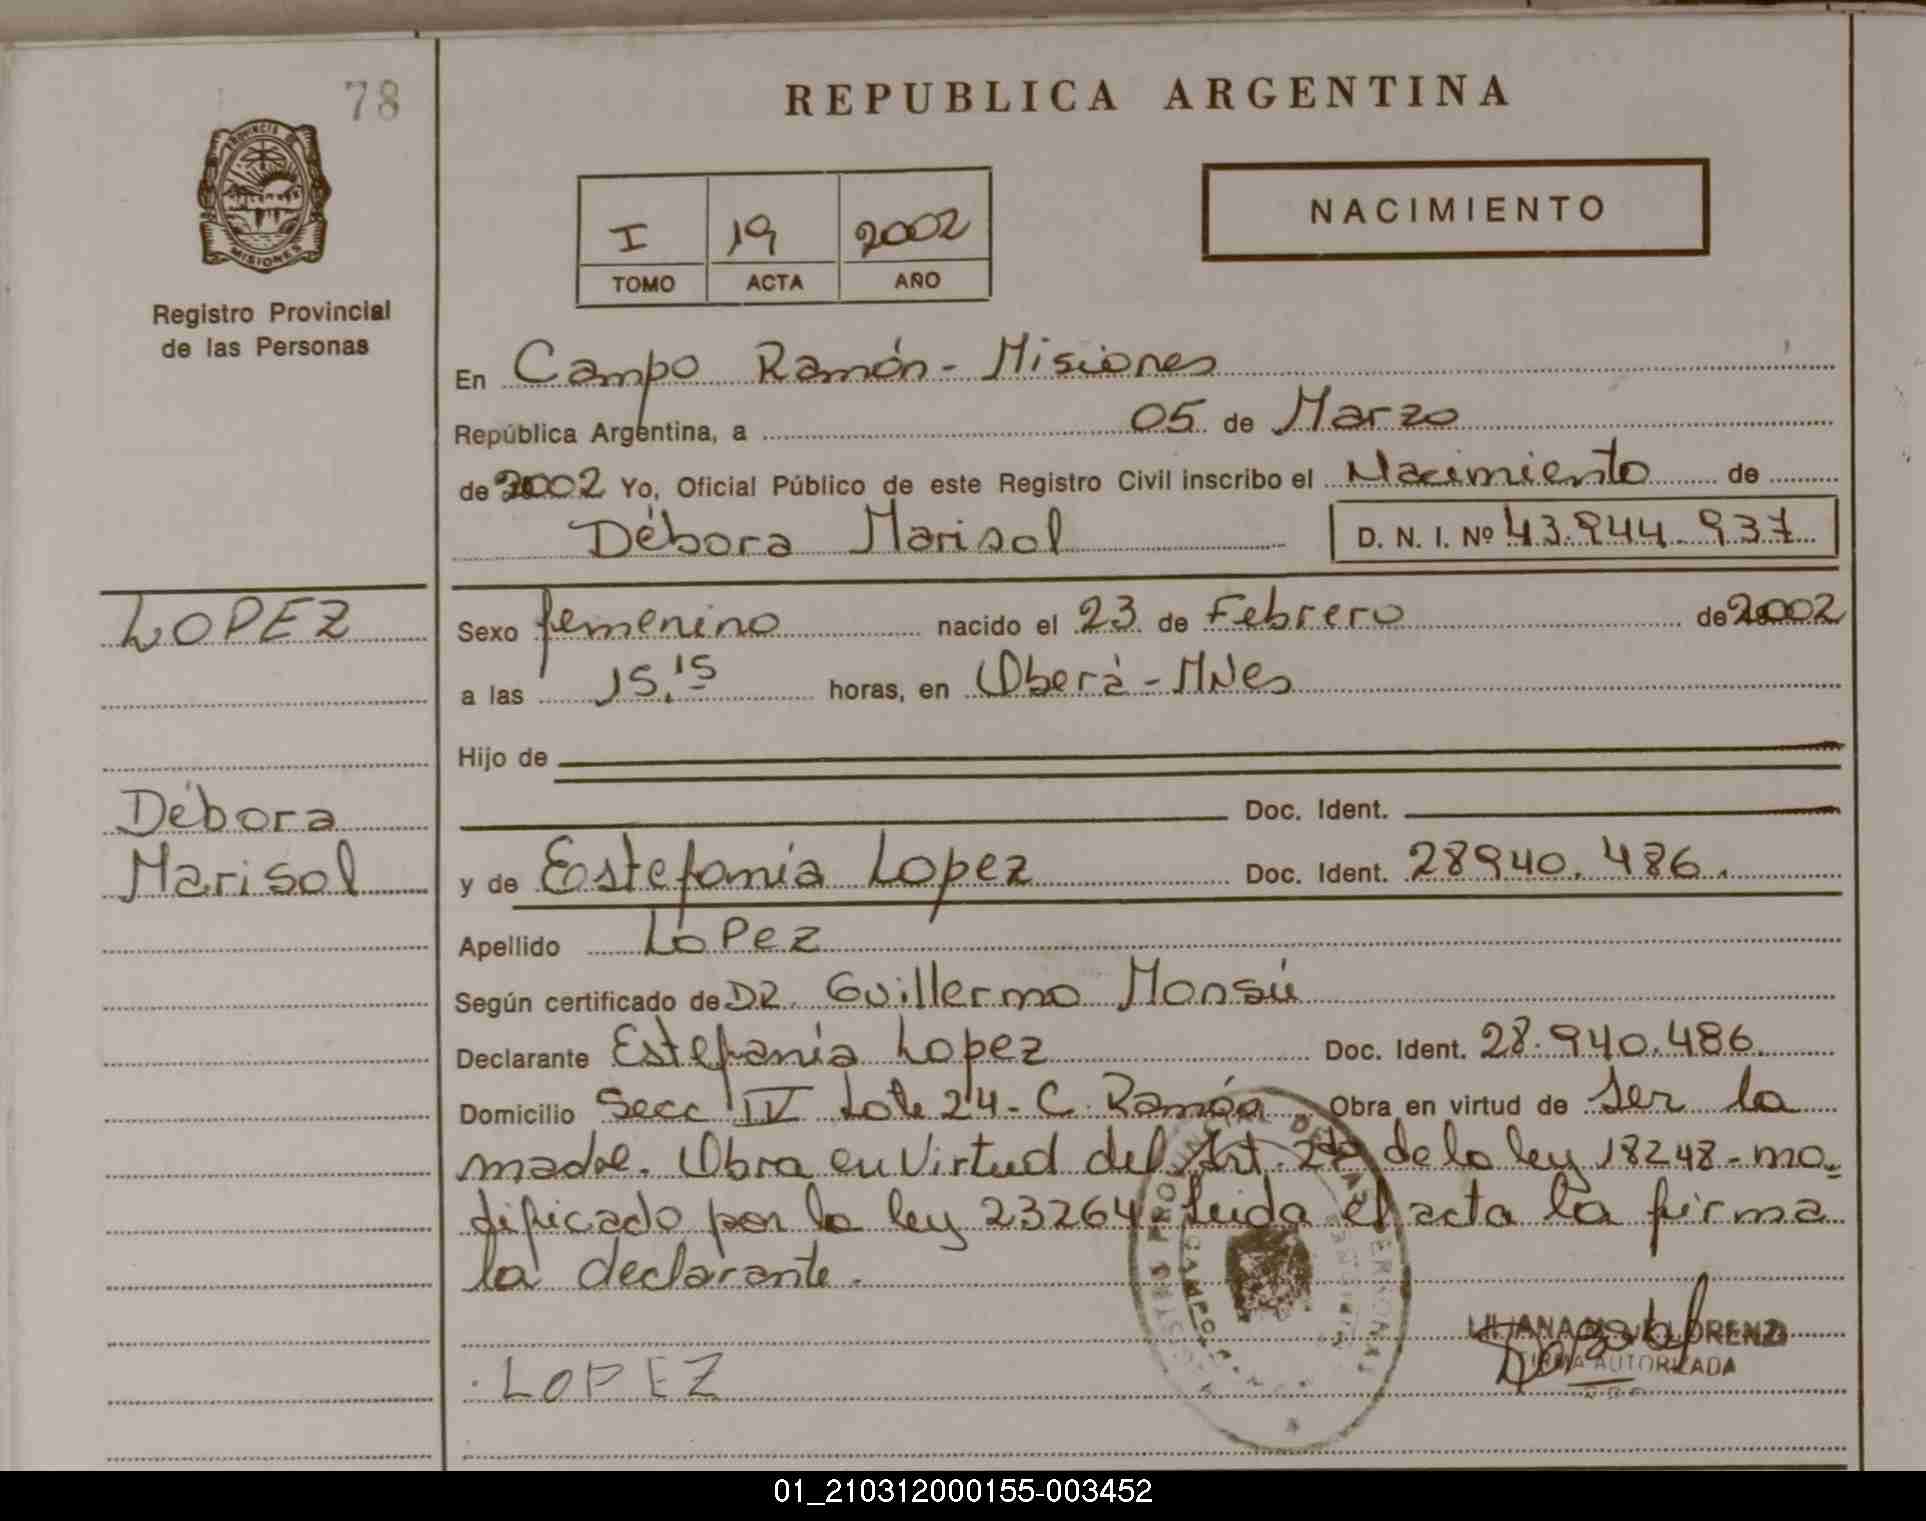 78
REPUBLICA ARGENTINA
PROVINCIA DE MISIONES
I 19 2002
TOMO ACTA AÑO
NACIMIENTO
Registro Provincial
de las Personas
En Campo Ramón - Misiones
República Argentina, a 05 de Marzo
de 2002 Yo, Oficial Público de este Registro Civil inscribo el Nacimiento de
Débora Marisol D. N. I. Nº 43.944.937
LOPEZ
Sexo femenino nacido el 23 de Febrero de 2002
a las 15.15 horas, en Oberá - MNes
Hijo de
Doc. Ident.
Débora
Marisol
y de Estefanía Lopez Doc. Ident. 28940.486.
Apellido LOPez
Según certificado de DR. Guillermo Monsú
Declarante Estefanía Lopez Doc. Ident. 28.940.486.
Domicilio Secc IV Lote 24 - C. Ramón Obra en virtud de Ser la
madre. Obra en Virtud del Art. de la ley 18248 - mo-
dificado por la ley 23264. Leida el acta la firma
la declarante.
LOPEZ
LILIANA LORENZ
FIRMA AUTORIZADA
CAMPO
01_210312000155-003452